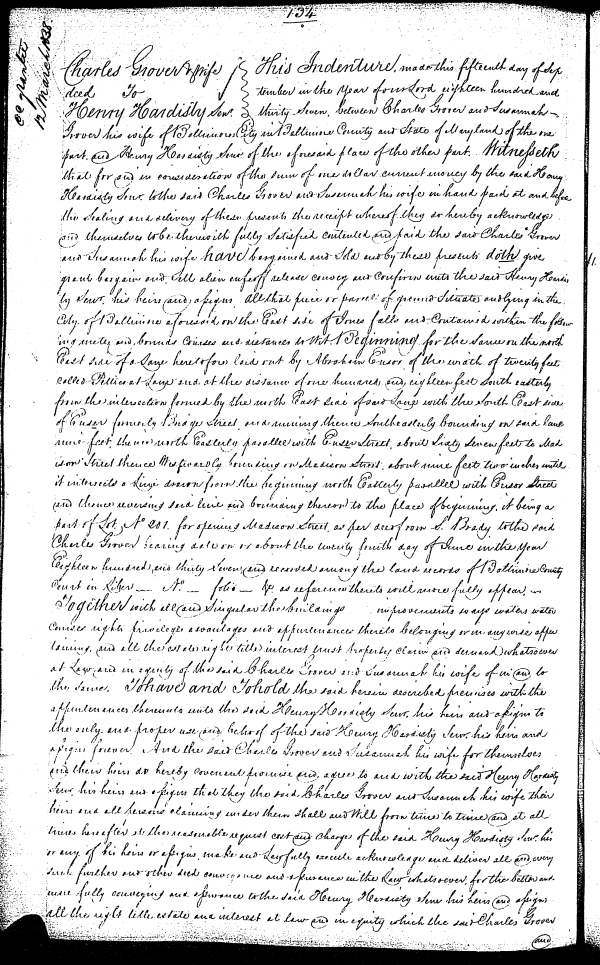 134
12 March 1838
Charles Grover & wife
deed To
Henry Hardisty Senr.
This Indenture, made this fifteenth day of Sep
tember in the Year of our Lord eighteen hundred and
thirty Seven, between Charles Grover and Susannah
Grover his wife of Baltimore City in Baltimore County and State of Maryland of the one
part, and Henry Hardisty Senr of the aforesaid place of the other part. Witnesseth
that for and in consideration of the sum of one dollar current money by the said Henry
Hardisty Senr. to the said Charles Grover and Susannah his wife in hand paid at and before
the Sealing and delivery of these presents the receipt whereof they do hereby acknowledge
and themselves to be therewith fully Satisfied contented and paid the said Charles Grover
and Susannah his wife have bargained and Sold and by these presents doth give
grant bargain and Sell alien enfeoff release convey and Confirm unto the said Henry Hardis
ty Senr. his heirs and assigns All that piece or parcel of ground Situate and lying in the
City of Baltimore aforesaid on the East side of Jones falls and Contained within the follow
ing metes and bounds Courses and distances to Wit. Beginning for the Same on the north
East side of a Lane heretofore laid out by Abraham Ensor of the width of twenty feet
called Lane and at the distance of one hundred and eighteen feet South easterly
from the intersection formed by the north East side of said Lane with the South East side
of Ensor formerly Bridge Street, and running thence Southeasterly bounding on said lane
nine feet, thence north Easterly parallel with Ensor Street, about Sixty Seven feet to Mad
ison Street thence Westwardly bounding on Madison Street, about nine feet two inches until
it intersects a line drawn from the beginning north Easterly parallel with Ensor Street
and thence reversing said line and bounding thereon to the place of beginning, it being a
part of Lot No 201. for opening Madison Street, as per deed from S. Brady to the said
Charles Grover bearing date on or about the twenty fourth day of June in the Year
Eighteen hundred and thirty Seven and recorded among the land records of Baltimore County
Court in Liber — No. — folio — &c as reference thereto will more fully appear. —
Together with all and Singular the buildings improvements ways waters water
courses rights privileges advantages and appurtenances thereto belonging or in anywise apper
taining, and all the estate right title interest trust property claim and demand whatsoever
at Law and in equity of the said Charles Grover and Susannah his wife of in and to
the same. To have and To hold the said herein described premises with the
appurtenances thereunto unto the said Henry Hardisty Senr. his heirs and assigns to
the only and proper use and behoof of the said Henry Hardisty Senr. his heirs and
assigns forever. And the said Charles Grover and Susannah his wife for themselves
and their heirs do hereby covenant promise and agree to and with the said Henry Hardisty
Senr. his heirs and assigns that they the said Charles Grover and Susannah his wife their
heirs and all persons claiming under them shall and Will from time to time and at all
times hereafter at the reasonable request cost and charges of the said Henry Hardisty Senr. his
or any of his heirs or assigns make and Lawfully execute acknowledge and deliver all and every
such further and other deed conveyance and assurance in the Law whatsoever, for the better and
more fully conveying and assurance to the said Henry Hardisty Senr his heirs and assigns
all the right title estate and interest at law and in equity which the said Charles Grover
and